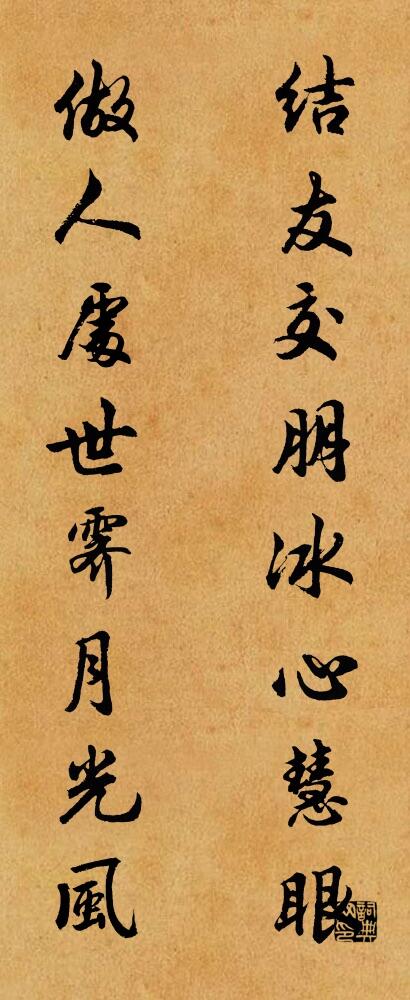 结友交朋冰心慧眼
做人處世霽月光風